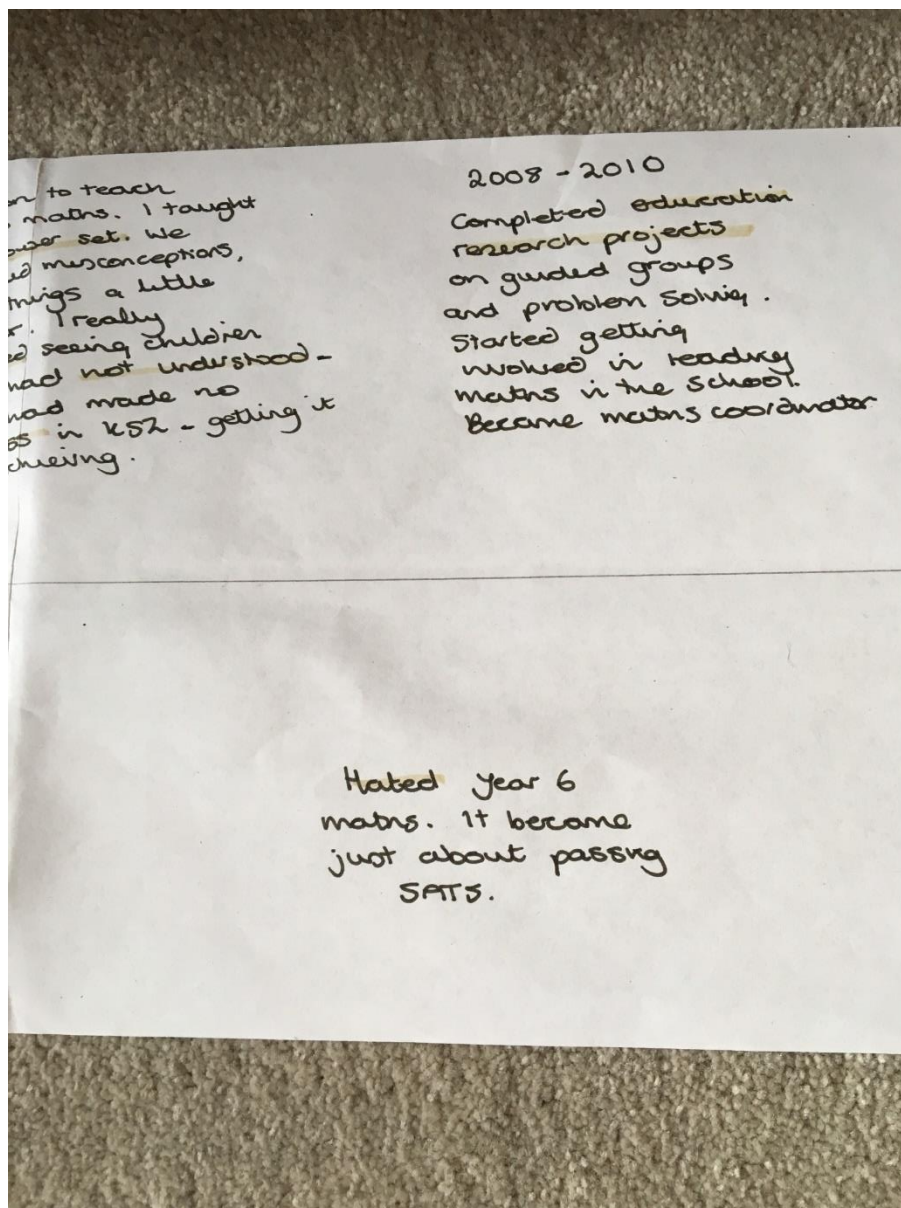 to teach
maths. I taught
set. We
misconceptions,
things a little
I really
seeing children
had not understood -
had made no
in KS2 - getting it
2008 - 2010
Completed education
research projects
on guided groups
and problem solving.
Started getting
involved in leading
maths in the school.
Became maths coordinator
Hated year 6
maths. It became
just about passing
SATS.